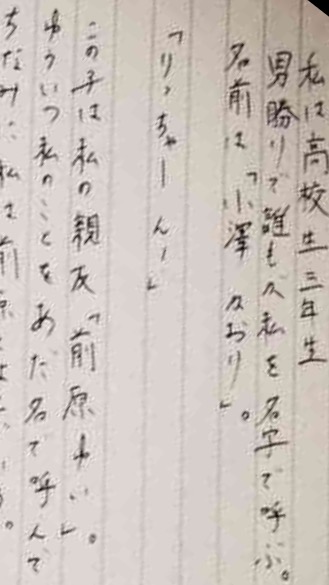 私は高校生三年生
男勝りで誰もが私を名字で呼ぶ。
名前は「小澤 かおり」。
「りっちゃーんー」
この子は私の親友「前原ゆい」。
ゆういつ私のことをあだ名で呼んで
ちなみに私は前原とは